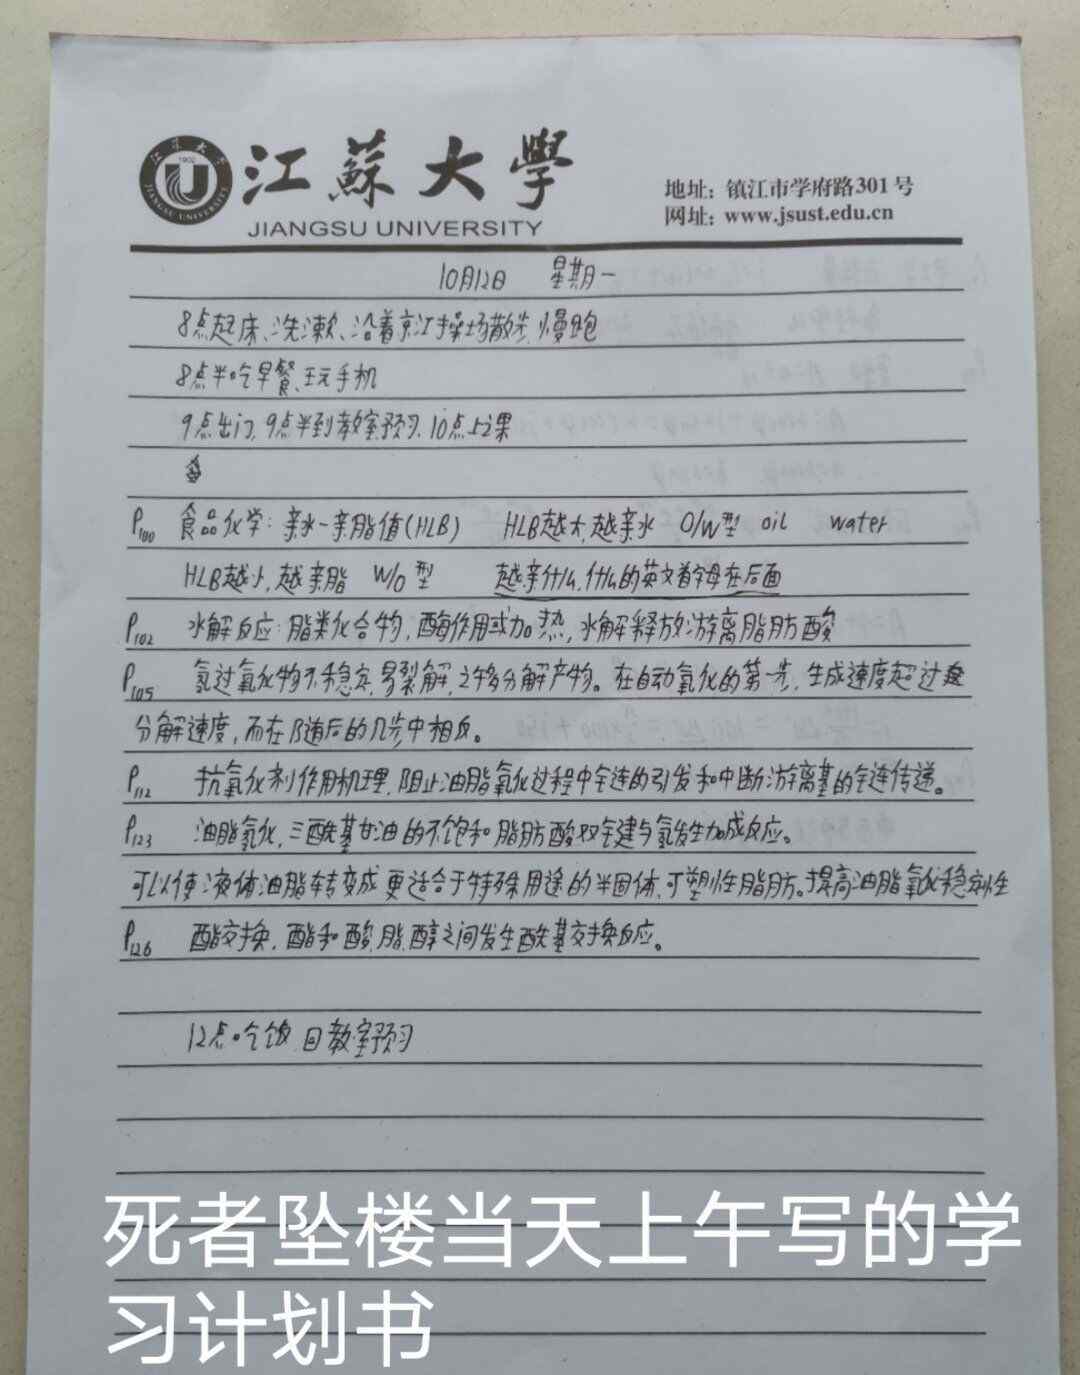 江蘇大學
JIANGSU UNIVERSITY
江苏大学
1902
JIANGSU UNIVERSITY
地址：镇江市学府路301号
网址：www.jsust.edu.cn
10月12日 星期一
8点起床、洗漱、沿着京江操场散步,慢跑
8点半吃早餐、玩手机
9点出门,9点半到教室预习,10点上课
P100 食品化学：亲水-亲脂值(HLB) HLB越大,越亲水 O/W型 oil water
HLB越小,越亲脂 W/O型 越亲什么,什么的英文首字母在后面
P102 水解反应：脂类化合物,酶作用或加热,水解释放游离脂肪酸
P105 氢过氧化物不稳定,易裂解,之多分解产物。在自动氧化的第一步,生成速度超过
分解速度,而在随后的几步中相反。
P112 抗氧化剂作用机理,阻止油脂氧化过程中链的引发和中断游离基的链传递。
P123 油脂氢化,三酰基甘油的不饱和脂肪酸双键与氢发生加成反应。
可以使液体油脂转变成更适合于特殊用途的半固体,可塑性脂肪。提高油脂氧化稳定性
P126 酯交换,酯和酸,脂,醇之间发生酰基交换反应。
12点吃饭 回教室预习
死者坠楼当天上午写的学
习计划书